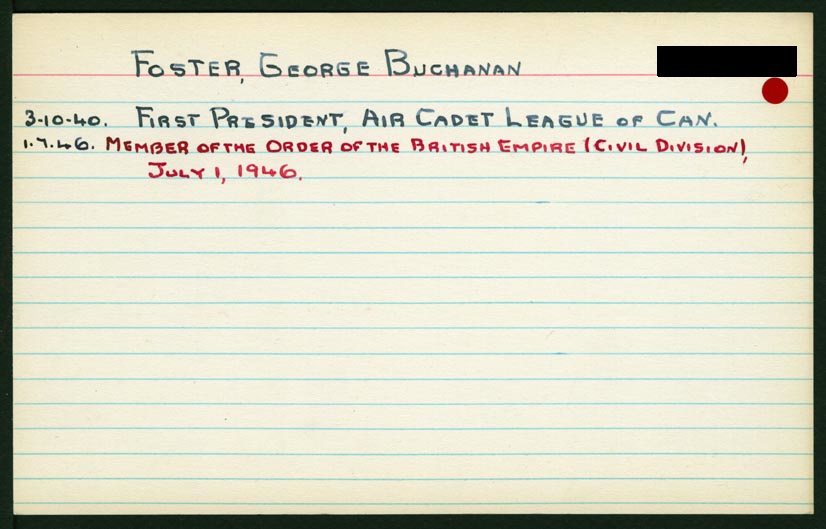 FOSTER, GEORGE BUCHANAN
3-10-40. FIRST PRESIDENT, AIR CADET LEAGUE OF CAN.
1.7.46. MEMBER OF THE ORDER OF THE BRITISH EMPIRE (CIVIL DIVISION),
JULY 1, 1946.